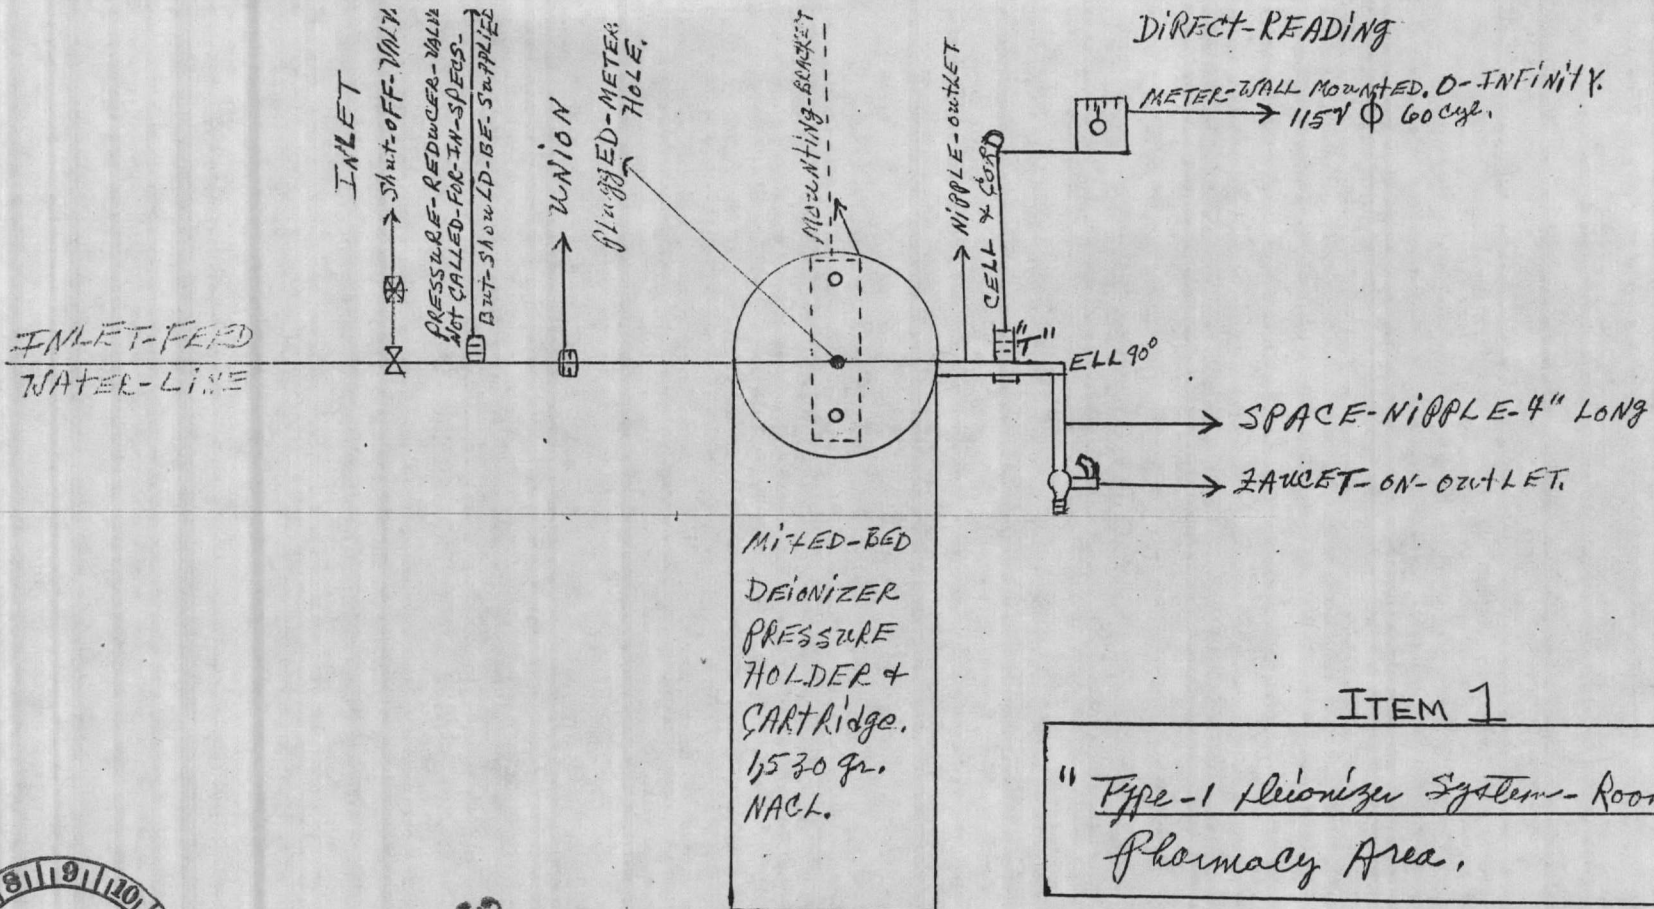 DIRECT-READING
METER-WALL MOUNTED. O-INFINITY.
115V ϕ 60 cyc.
INLET
Shut-OFF-VALV
PRESSURE-REDUCER-VALV
NOT CALLED-FOR-IN-SPECS-
BUT-SHOULD-BE-SUPPLIED
UNION
PLUGGED-METER
HOLE.
MOUNTING-BRACKET
NIPPLE-OUTLET
CELL & CORD
"T"
ELL 90°
INLET-FEED
WATER-LINE
SPACE-NIPPLE-4" LONG
FAUCET-ON-OUTLET.
MIXED-BED
DEIONIZER
PRESSURE
HOLDER &
CARTRIDGE.
1,530 gr.
NACL.
ITEM 1
" Type-1 Deionizer System - Roo
Pharmacy Area.
8 9 10